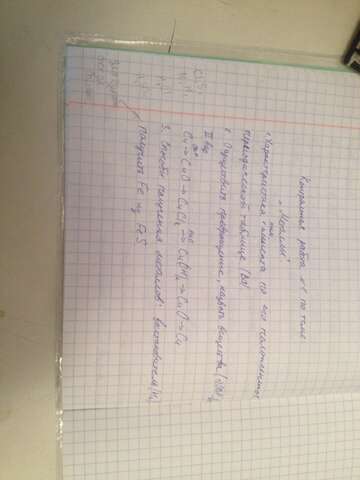 Контрольная работа №1 по теме
"Металлы"
1. Характеристика элемента по его положению в
периодической таблице (Ba).
2. Осуществить превращение, назвать вещества
II вар
Cu → CuO → CuCl₂ → Cu(OH)₂ → CuO → Cu
3. Способы получения металлов: восстановителем (H₂)
получить Fe из FeS